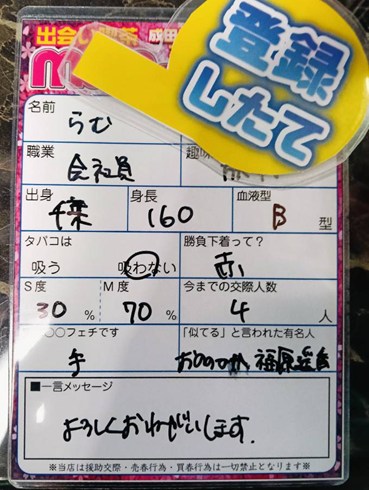 出会い喫茶 成田
登録
したて
名前
らむ
職業
会社員
趣味
出身
千葉
身長
160
血液型
B 型
タバコは
吸う 吸わない
勝負下着って?
赤
S度
30 %
M度
70 %
今までの交際人数
4 人
○○フェチです
手
「似てる」と言われた有名人
おのののか 福原遥
■一言メッセージ
よろしくおねがいします.
※当店は援助交際・売春行為・買春行為は一切禁止となります※